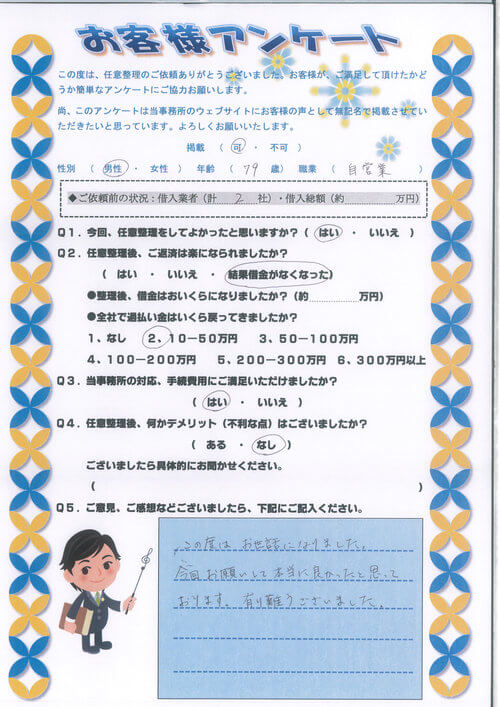 お客様アンケート
この度は、任意整理のご依頼ありがとうございました。お客様が、ご満足して頂けたかど
うか簡単なアンケートにご協力お願いします。
尚、このアンケートは当事務所のウェブサイトにお客様の声として無記名で掲載させてい
ただきたいと思っています。よろしくお願いいたします。
掲載 ( 可 ・ 不可 )
性別 ( 男性 ・ 女性 ) 年齢 ( 79 歳) 職業 ( 自営業 )
◆ご依頼前の状況：借入業者（計 2 社）・借入総額（約 万円）
Q1．今回、任意整理をしてよかったと思いますか？（ はい ・ いいえ ）
Q2．任意整理後、ご返済は楽になられましたか？
（ はい ・ いいえ ・ 結果借金がなくなった）
●整理後、借金はおいくらになりましたか？（約............万円）
●全社で過払い金はいくら戻ってきましたか？
1、なし 2、10－50万円 3、50－100万円
4、100－200万円 5、200－300万円 6、300万円以上
Q3．当事務所の対応、手続費用にご満足いただけましたか？
（ はい ・ いいえ ）
Q4．任意整理後、何かデメリット（不利な点）はございましたか？
（ ある ・ なし ）
ございましたら具体的にお聞かせください。
（ ）
Q5．ご意見、ご感想などございましたら、下記にご記入ください。
この度は お世話になりました。
今回お願いして本当に良かったと思って
おります。有り難うございました。